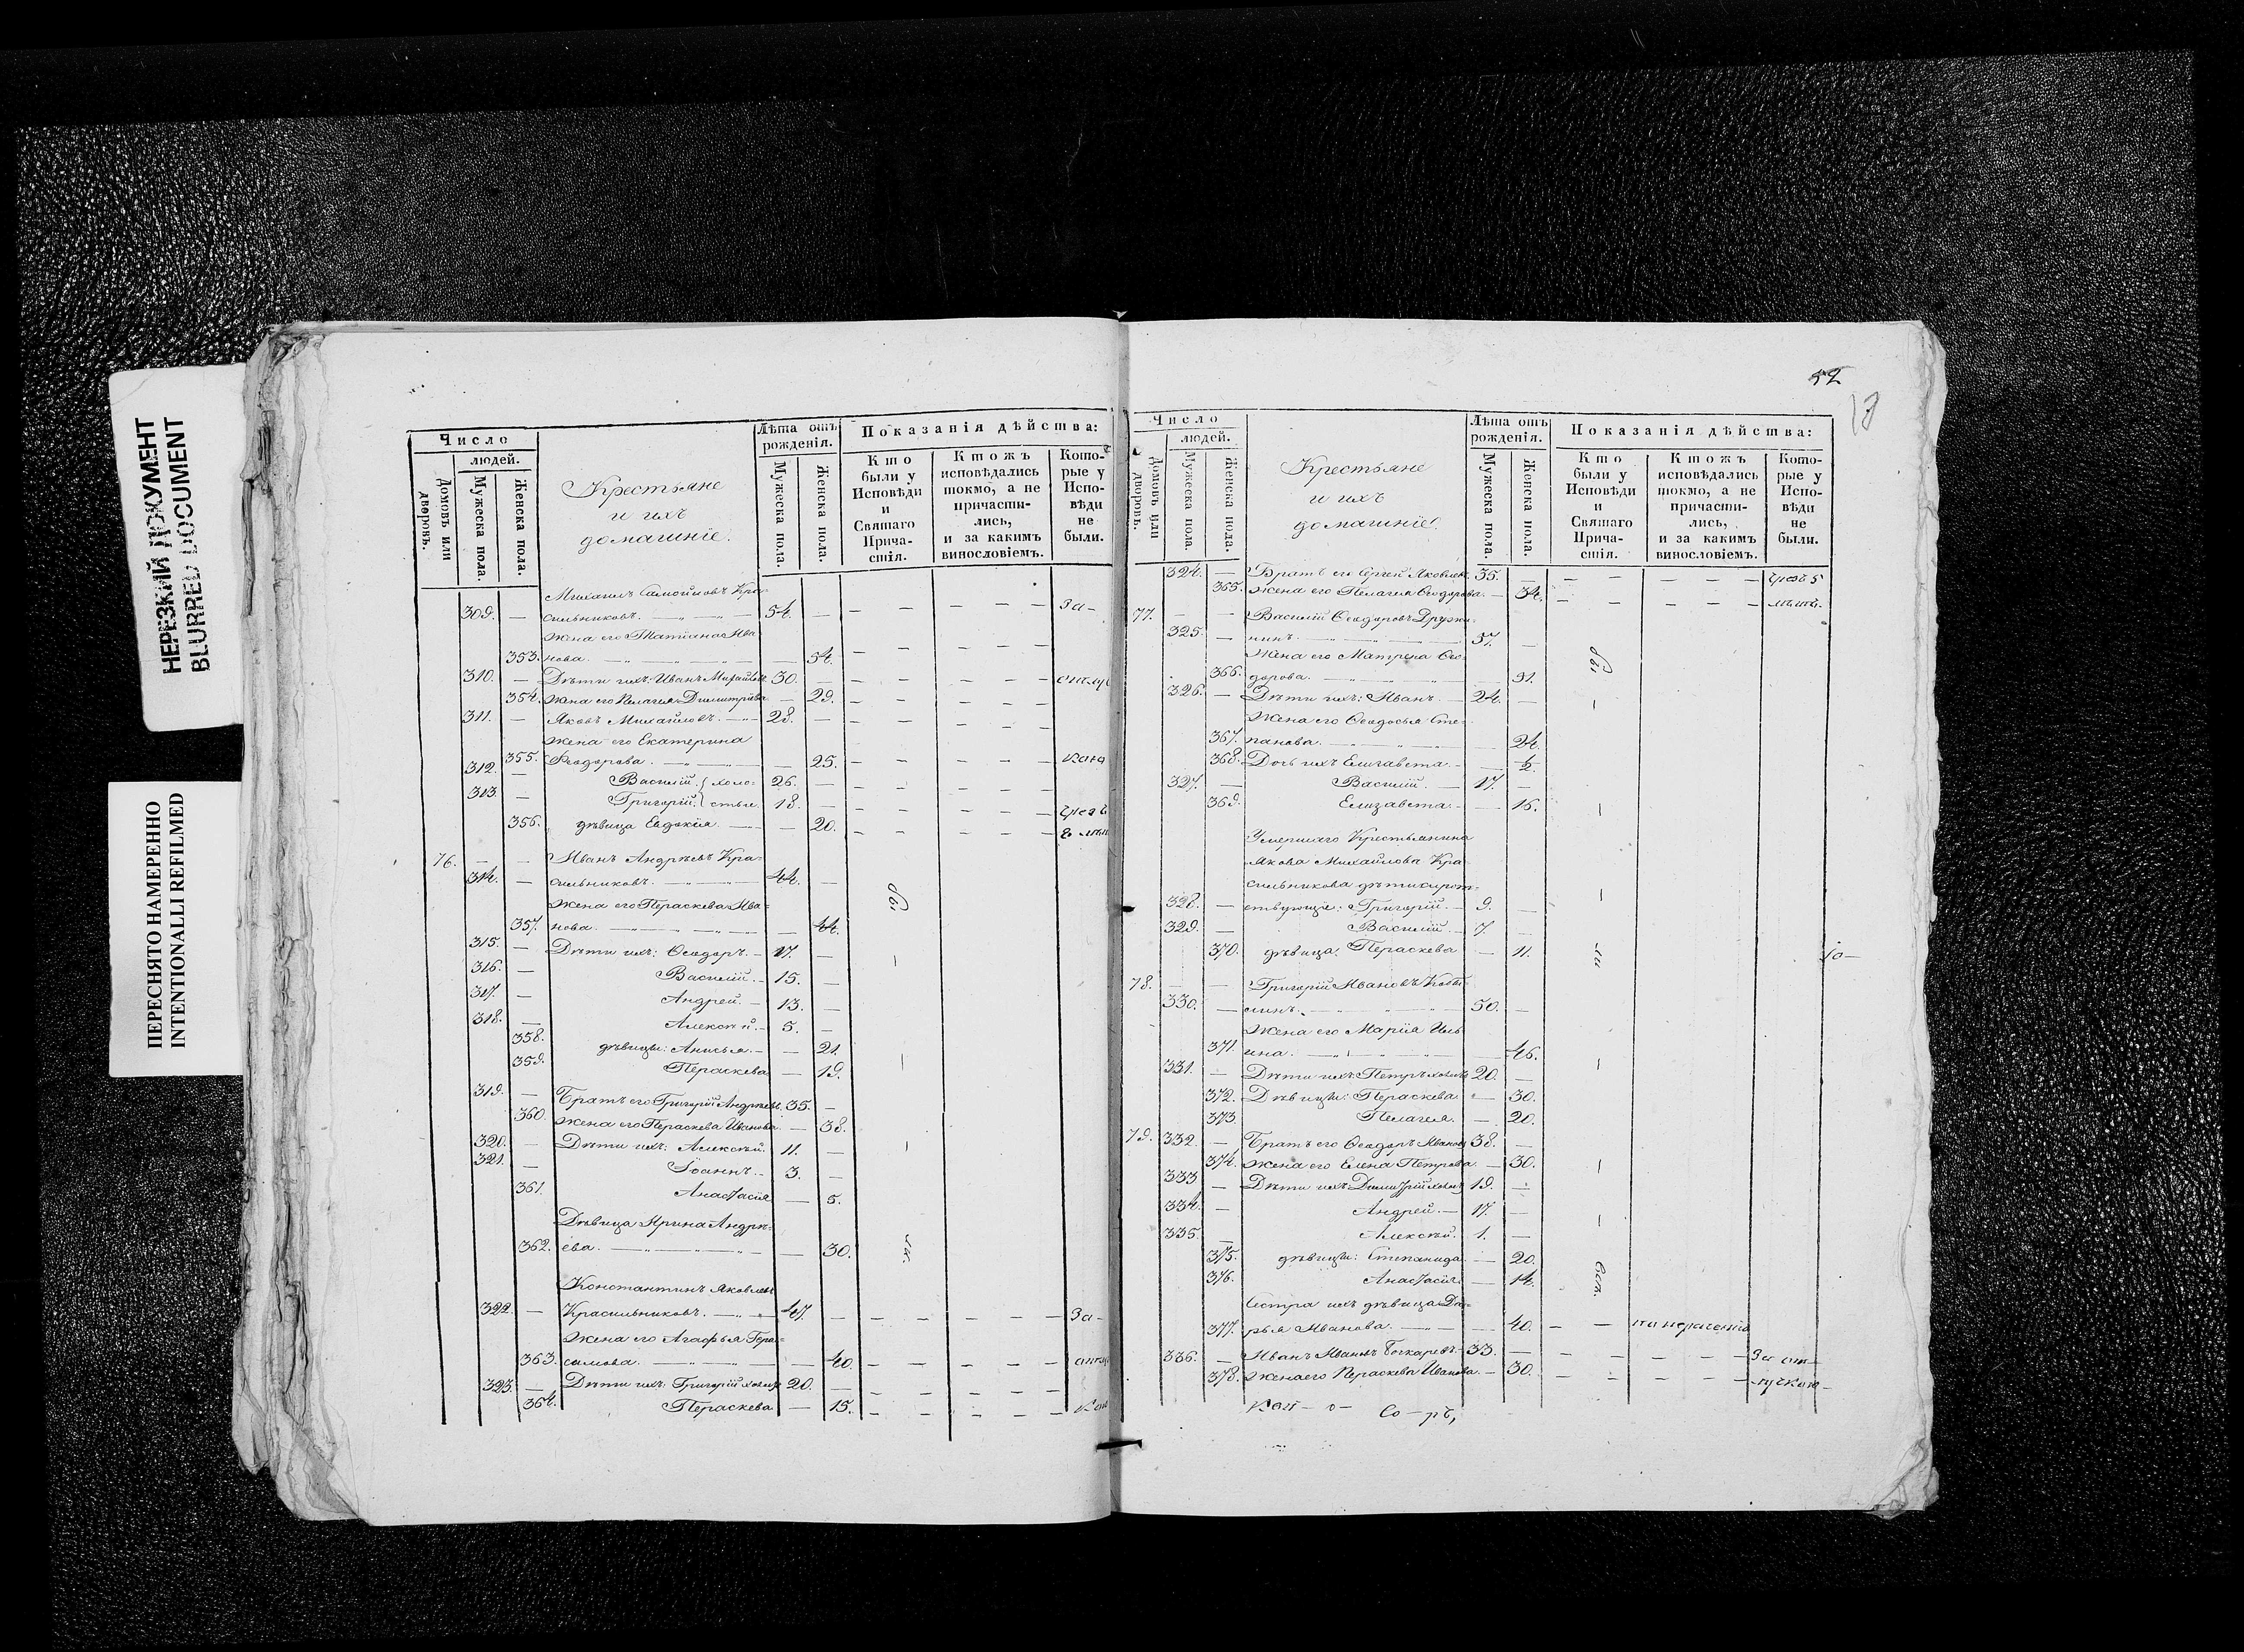 НЕРЕЗКИЙ ДОКУМЕНТ
BLURRED DOCUMENT
ПЕРЕСНЯТО НАМЕРЕННО
INTENTIONALLI REFILMED
Число
людей.
Домовъ или дворовъ.
Мужеска пола.
Женска пола.
Крестьяне
и ихъ
домашніе.
Лѣта отъ
рожденія.
Мужеска пола.
Женска пола.
Показанія дѣйства:
Кто
были у
Исповѣди
и
Святаго
Прича-
стія.
Ктожъ
исповѣдались
токмо, а не
причасти-
лись,
и за какимъ
винословіемъ.
Кото-
рые у
Испо-
вѣди
не
были.
Михаилъ Самойловъ Кра-
309. — сильниковъ. 54. — За-
жена его Татіана Ива
353. нова. — 54.
310. — Дѣти ихъ: Иванъ Михайловъ 30. —
354. жена его Пелагея Димитріева — 29.
311. — Яковъ Михайловъ. 28. —
жена его Екатерина
355. Ѳеодорова. — 25.
312. — Василій. } холо- 26. —
313. — Григорій. } стые 18. —
356. дѣвица Евдокія. — 20.
76. — — Иванъ Андреевъ Кра-
314. — сильниковъ. 44. —
жена его Параскева Ива-
357. нова. — 44.
315. — Дѣти ихъ: Ѳеодоръ. 17. —
316. — Василій. 15. —
317. — Андрей. 13. —
318. — Алексѣй. 5. —
358. дѣвицы: Анисья. — 21.
359. Пераскева — 19.
319. — Братъ его Григорій Андреевъ 35. —
360. жена его Пераскева Иванова. — 38.
320. — Дѣти ихъ: Алексѣй. 11. —
321. — Іоаннъ. 3. —
361. Анастасія — 5.
Дѣвица Ирина Андрѣ-
362. ева. — 30.
Константинъ Яковлевъ
322. — Красильниковъ. 47. — За-
жена его Агафья Гера-
363. симова. — 40.
323. — Дѣти ихъ: Григорій холост 20. —
364. Пераскева — 15.
52
Число
людей.
Домовъ или дворовъ.
Мужеска пола.
Женска пола.
Крестьяне
и ихъ
домашніе
Лѣта отъ
рожденія.
Мужеска пола.
Женска пола.
Показанія дѣйства:
Кто
были у
Исповѣди
и
Святаго
Прича-
стія.
Ктожъ
исповѣдались
токмо, а не
причасти-
лись,
и за какимъ
винословіемъ.
Кото-
рые у
Испо-
вѣди
не
были.
324. — Братъ его Сергей Яковлевъ 35. —
365. жена его Пелагея Ѳеодорова. — 34.
77. — — Василій Ѳеодоровъ Дружи-
325. — нинъ. 57. —
жена его Матрена Ѳео-
366. дорова. 31.
326. — Дѣти ихъ: Иванъ 24. —
жена его Ѳеодосья Сте-
367. панова. — 24.
368. Дочь ихъ Елизавета. — ½.
327. — Василій. 17. —
369. Елизавета. — 16.
Умершаго Крестьянина
Якова Михайлова Кра-
сильникова дѣти сирот-
328. — ствующіе: Григорій. 9. —
329. — Василій. 7 —
370. дѣвица Пераскева — 11.
78. — — Григорій Ивановъ
330. — 50. —
жена его Марія Иль
371. ина. — 46.
331. — Дѣти ихъ: Петръ холостъ 20. —
372. Дѣвицы: Пераскева — 30.
373. Пелагея. — 20.
79. 332. — Братъ его Ѳеодоръ Ивановъ 38. —
374. жена его Елена Петрова. — 30.
333 — Дѣти ихъ: Димитрій холостъ 19. —
334. — Андрей. — 17. —
335. — Алексѣй. 1. —
375. дѣвицы: Степанида — 20.
376. Анастасія — 14.
Сестра ихъ дѣвица Да-
377. рья Иванова. — 40. — — по нераченію
336. — Иванъ Ивановъ Бочкаревъ 33. — За от-
378. жена его Пераскева Иванова. — 30. лучкою